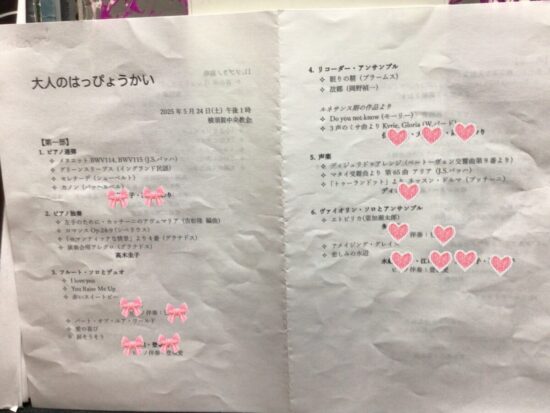 大人のはっぴょうかい
2025年5月24日(土) 午後1時
横須賀中央教会
【第一部】
1. ピアノ連弾
❖ メヌエット BWV114, BWV115 (J.S.バッハ)
❖ グリーンスリーヴス (イングランド民謡)
❖ セレナーデ (シューベルト)
❖ カノン (パッヘルベル)
2. ピアノ独奏
❖ 左手のために・カッチーニのアヴェマリア (吉松隆 編曲)
❖ ロマンス Op.24-9 (シベリウス)
❖ 「ロマンティックな情景」より4番 (グラナドス)
❖ 演奏会用アレグロ (グラナドス)
高木圭子
3. フルート・ソロとデュオ
❖ I love you
❖ You Raise Me Up
❖ 赤いスイートピー
伴奏・
❖ パート・オブ・ユア・ワールド
❖ 愛の喜び
❖ 涙そうそう
伴奏・
4. リコーダー・アンサンブル
❖ 眠りの精 (ブラームス)
❖ 故郷 (岡野禎一)
ルネサンス期の作品より
❖ Do you not know (モーリー)
❖ 3声のミサ曲より Kyrie, Gloria (W.バード)
5. 声楽
❖ ディジェリドゥアレンジ (ベートーヴェン交響曲第9番より)
❖ マタイ受難曲より 第65曲 アリア (J.S.バッハ)
❖ 「トゥーランドット」より ネッスン・ドルマ (プッチーニ)
6. ヴァイオリン・ソロとアンサンブル
❖ エトピリカ (葉加瀬太郎)
伴奏・
❖ アメイジング・グレイス
❖ 悲しみの水辺
伴奏・